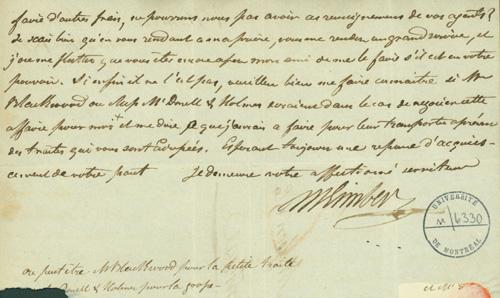 faire d'autres frais, ne pourrions nous pas avoir ces renseignemens de vos agents?
Je sais bien qu'en vous rendant a ma prière, vous me rendez un grand service, et
j'ose me flatter que vous etes encore assez mon ami de me le faire s'il est en votre
pouvoir. Si enfin il ne l'est pas, veuillez bien me faire connaitre si Mr
Blackwood ou Messrs McDonell & Holmes seraient dans le cas de negocier cette
affaire pour moi + et me dire ce que j'aurais a faire pour leur transporter
des traites qui vous sont
Esperant toujours une reponse d'acquies-
cement de votre part Je demeure votre affectionné serviteur
UNIVERSITÉ
M 6330
DE MONTRÉAL
ou peut être Mr Blackwood pour la petite traite
McDonell & Holmes pour la